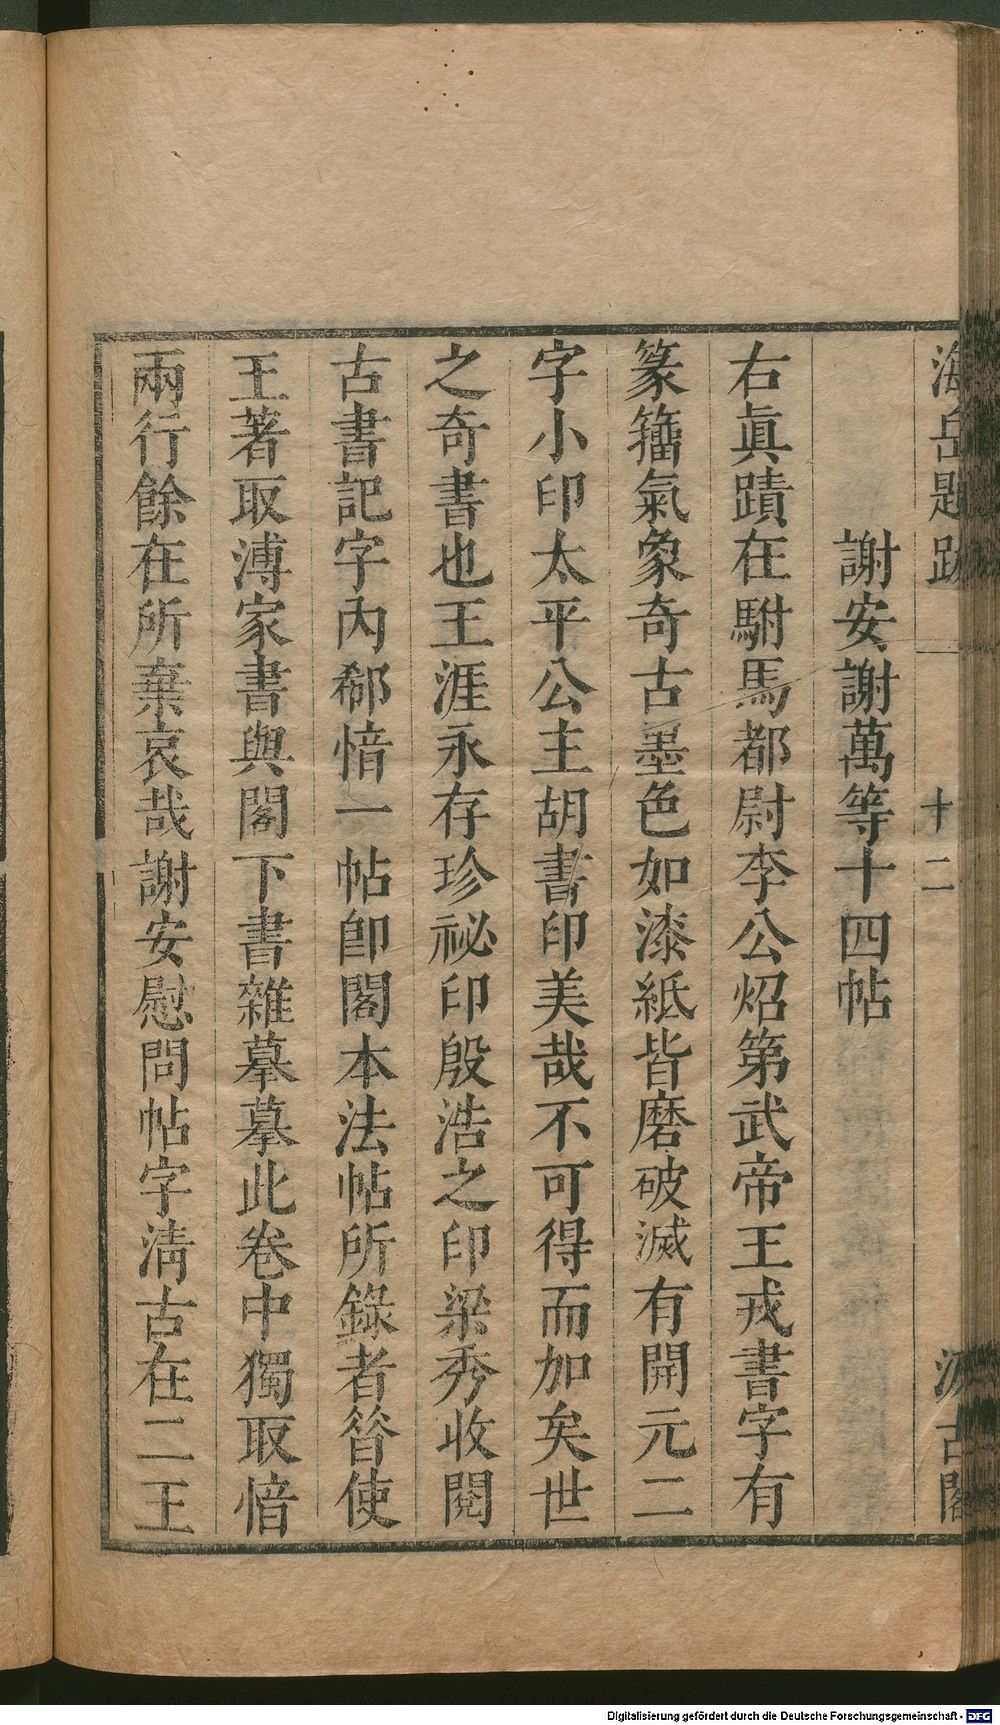 海岳題跋 十二 汲古閣
謝安謝萬等十四帖
右眞蹟在駙馬都尉李公炤第武帝王戎書字有
篆籀氣象奇古墨色如漆紙皆磨破滅有開元二
字小印太平公主胡書印美哉不可得而加矣世
之奇書也王涯永存珍祕印殷浩之印梁秀收閱
古書記字內郗愔一帖卽閣本法帖所錄者昝使
王著取溥家書與閣下書雜摹摹此卷中獨取愔
兩行餘在所棄哀哉謝安慰問帖字淸古在二王
Digitalisierung gefördert durch die Deutsche Forschungsgemeinschaft - DFG